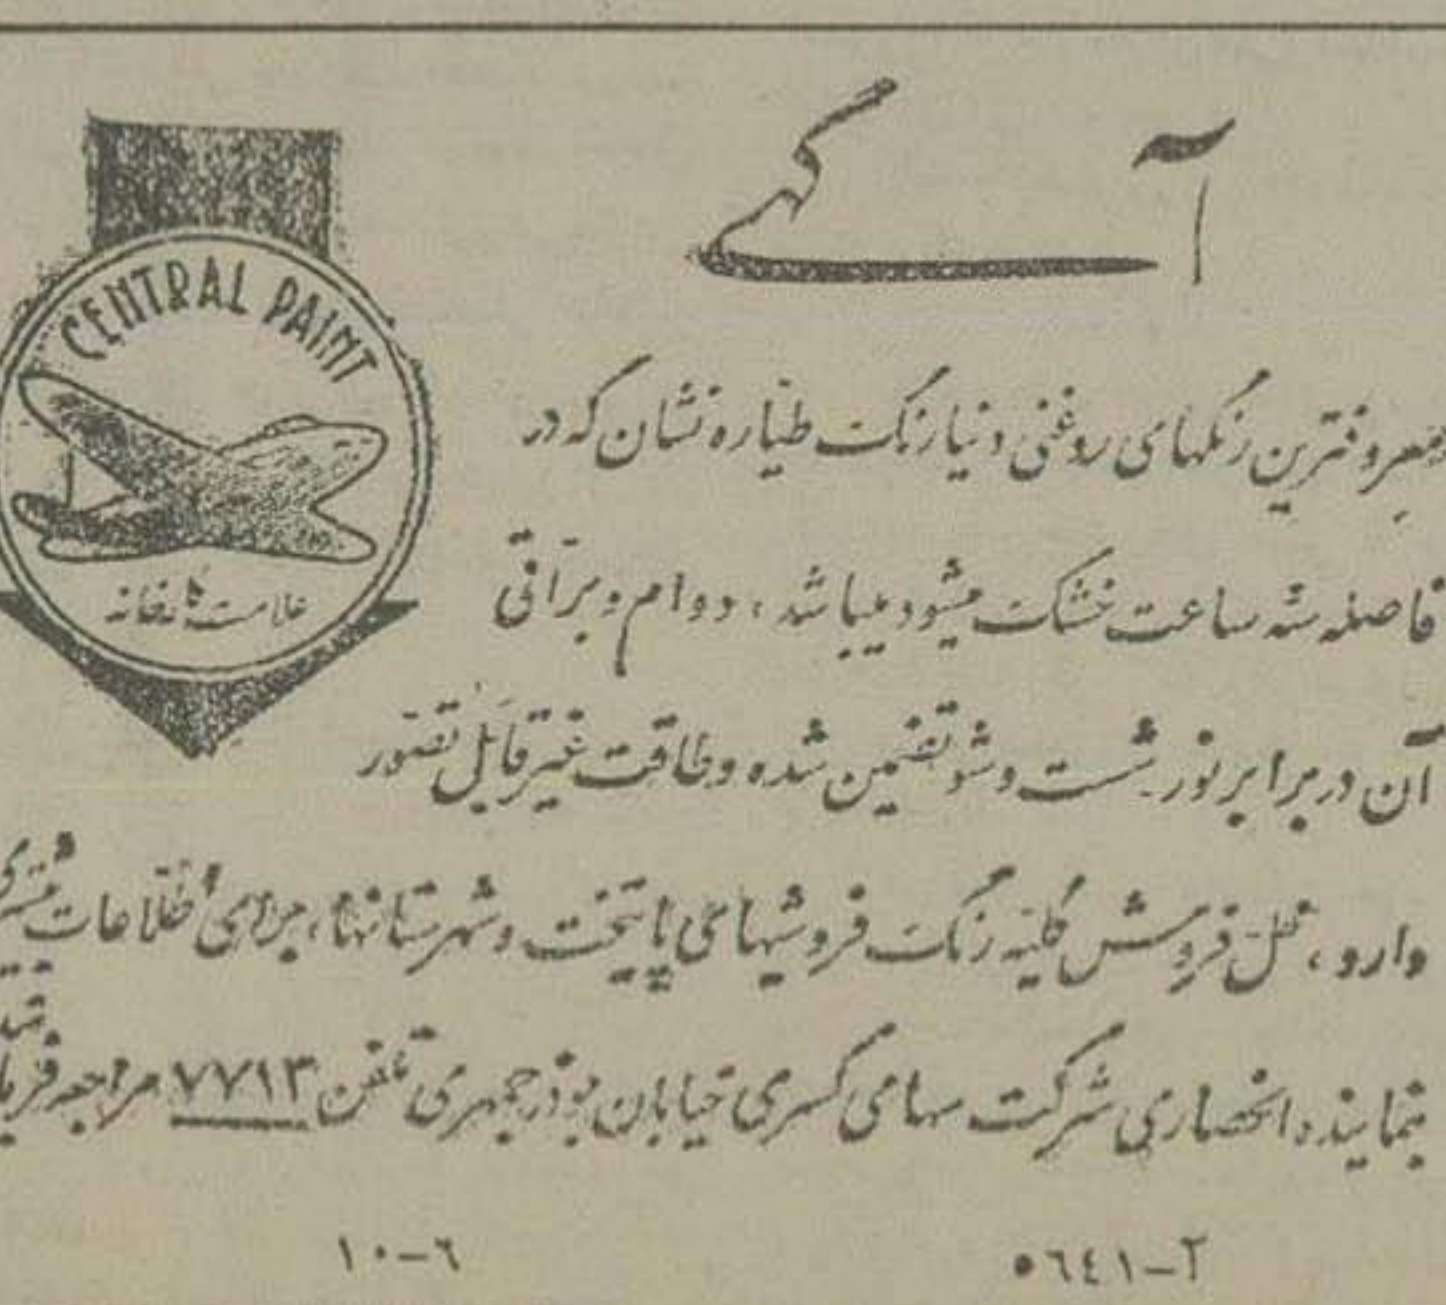 آگهی
CENTRAL PAINT
معروفترین رنگهای روغنی دنیا رنگ طیاره نشان که در
فاصله سه ساعت خشک میشود میباشد ، دوام و براقی
علامت کارخانه
آن در برابر نور . شست و شو تضمین شده و طاقت غیر قابل تصور
دارد ، محل فروش کلیه رنگ فروشیهای پایتخت و شهرستانها ، برای اطلاعات بیشتری
بنماینده انحصاری شرکت سهامی کسری خیابان بوذرجمهری تلفن ۷۷۱۳ مراجعه
۵٦٤۱-۲
۱۰-٦